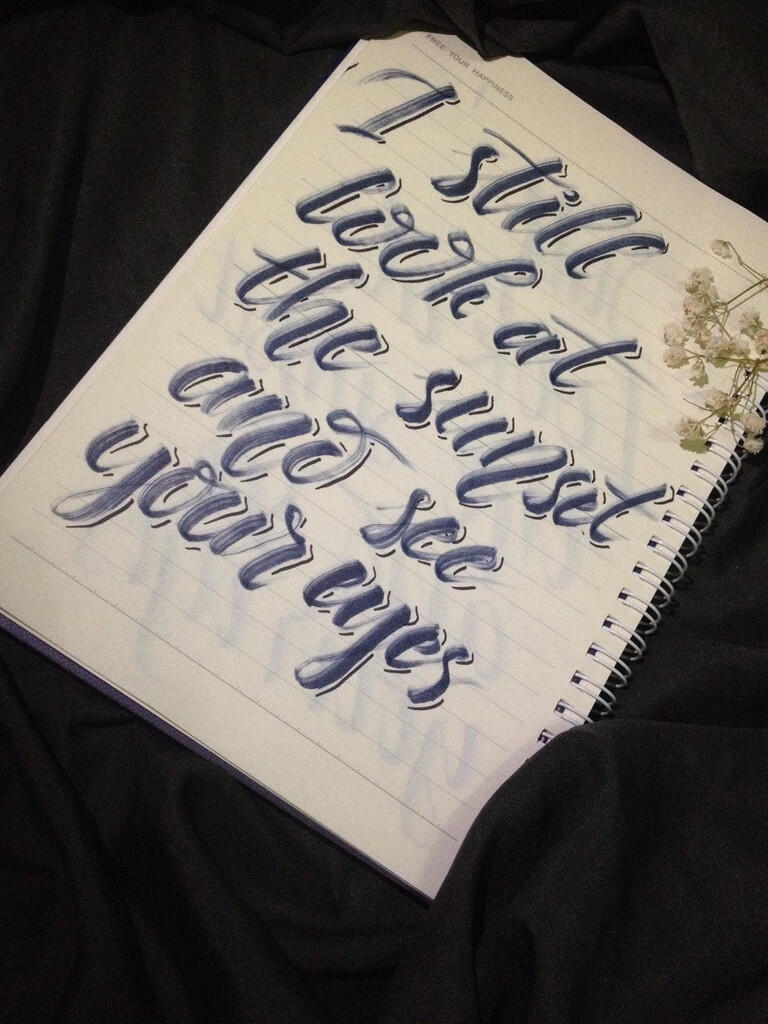 FREE YOUR HAPPINESS
I still
look at
the sunset
and see
your eyes